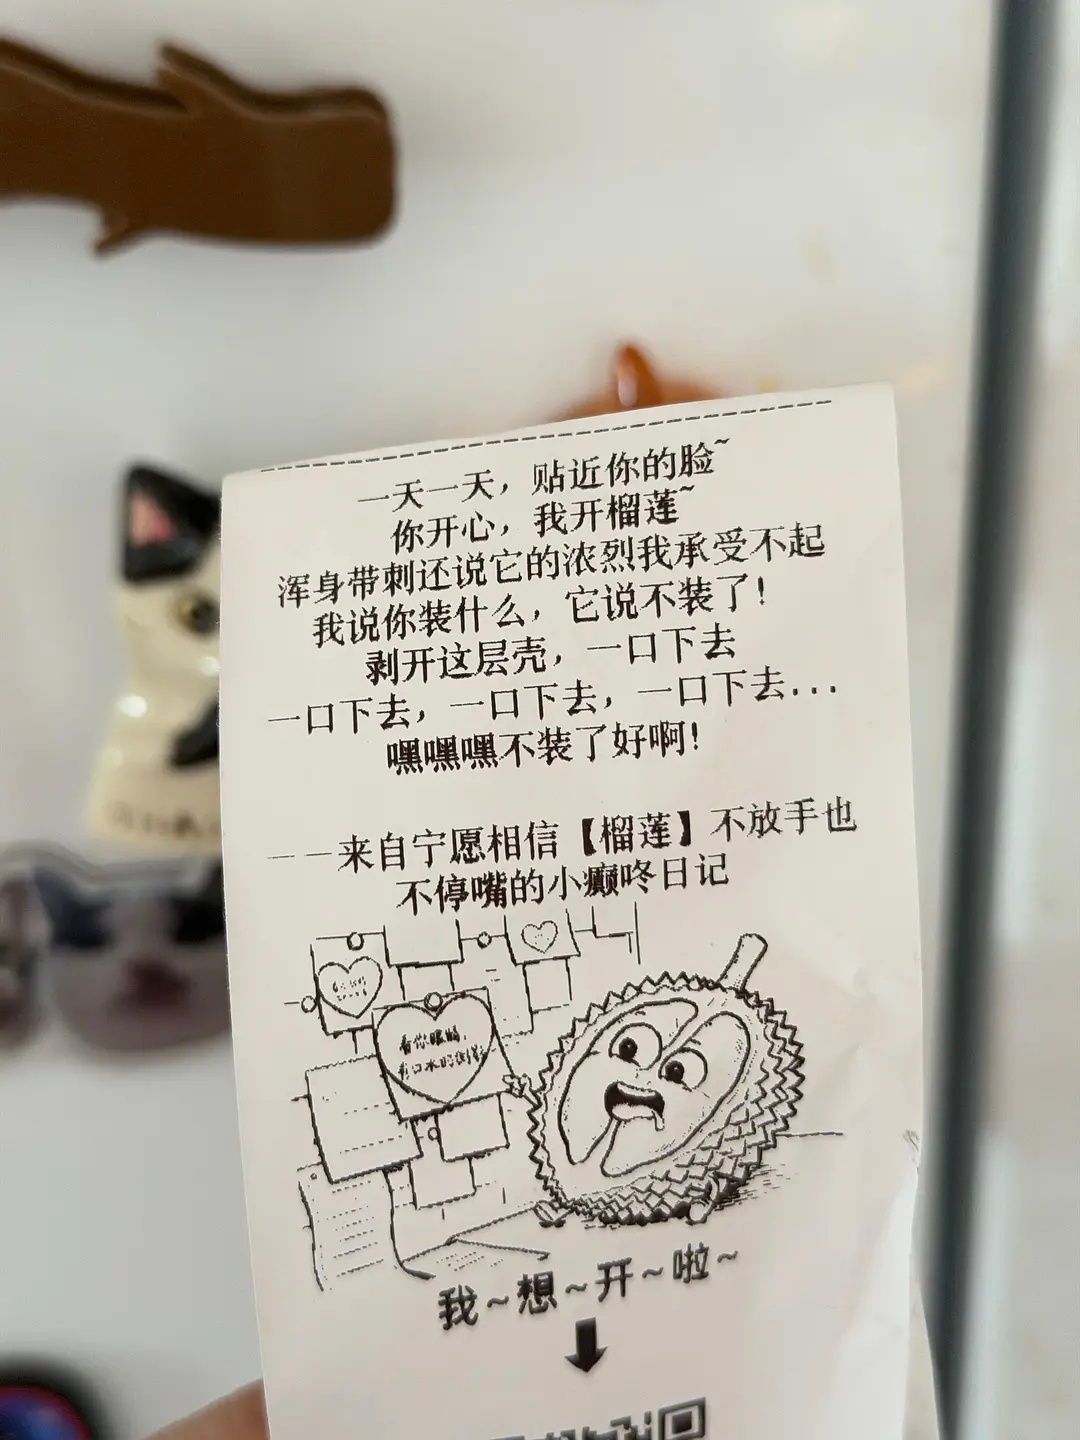 一天一天，贴近你的脸~
你开心，我开榴莲~
浑身带刺还说它的浓烈我承受不起
我说你装什么，它说不装了！
剥开这层壳，一口下去
一口下去，一口下去，一口下去...
嘿嘿嘿不装了好啊！
——来自宁愿相信【榴莲】不放手也
不停嘴的小癫咚日记
看你眼睛，
有口水的倒影
我~想~开~啦~